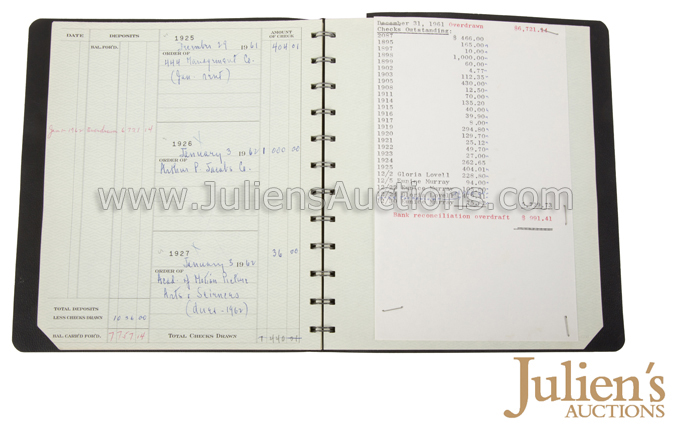 DATE DEPOSITS
BAL. FOR'D.
AMOUNT OF CHECK
1925
December 29 1961 404 01
ORDER OF
444 Management Co.
(Jan. rent)
Jan 1962 Overdrawn 6731 14
1926
January 3 1962 1 000 00
ORDER OF
Arthur P Jacobs Co.
1927
January 3 1962 36 00
ORDER OF
Acad. of Motion Picture
Arts &
(dues-1962)
TOTAL DEPOSITS
LESS CHECKS DRAWN 10 36 00
BAL. CARR'D FOR'D. 7767 14
TOTAL CHECKS DRAWN
December 31, 1961 Overdrawn $6,731.14
Checks Outstanding:
$ 466.00
1895 165.00
1897 10.00
1898 1,000.00
1900 60.00
1902 4.77
1903 112.35
1905 430.00
1908 12.50
1911 70.00
1914 135.20
1915 40.00
1916 39.90
1917 6.00
1919 294.80
1920 129.70
1921 25.12
1922 49.70
1923 27.00
1924 262.65
1925 404.01
12/2 Gloria Lovell 228.80
12/5 Eunice Murray 94.00
Bank reconciliation overdraft $
www.JuliensAuctions.com
Julien's
AUCTIONS